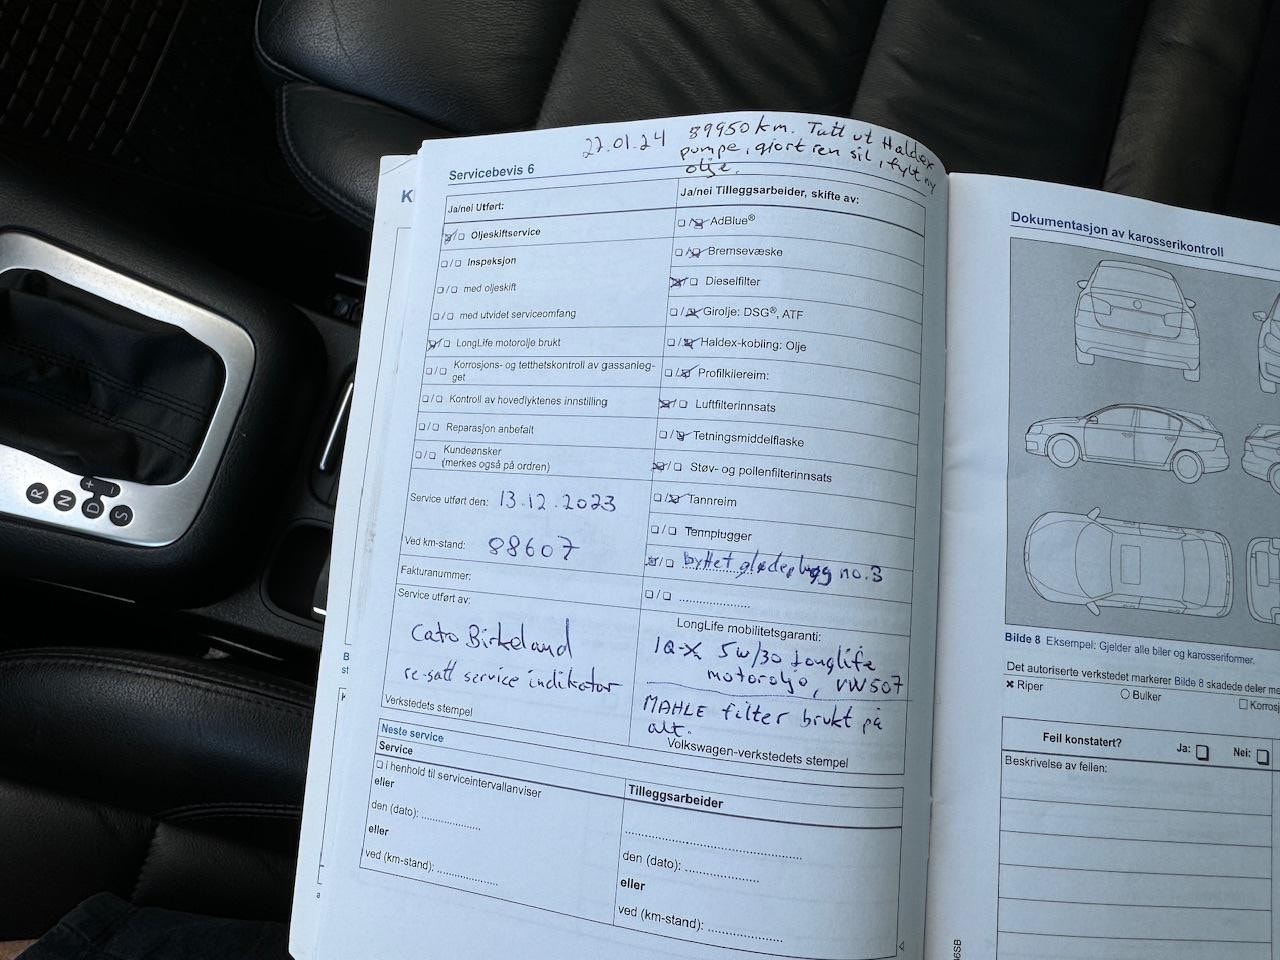 22.01.24 89950 km. Tatt ut Haldex
pumpe, gjort ren sil, fylt ny
olje.
Servicebevis 6
Ja/nei Utført:
Oljeskiftservice
Inspeksjon
med oljeskift
med utvidet serviceomfang
LongLife motorolje brukt
Korrosjons- og tetthetskontroll av gassanleg-
get
Kontroll av hovedlyktenes innstilling
Reparasjon anbefalt
Kundeønsker
(merkes også på ordren)
Service utført den: 13.12.2023
Ved km-stand: 88607
Fakturanummer:
Service utført av:
Cato Birkeland
re-satt service indikator
Verkstedets stempel
Ja/nei Tilleggsarbeider, skifte av:
AdBlue®
Bremsevæske
Dieselfilter
Girolje: DSG®, ATF
Haldex-kobling: Olje
Profilkilereim:
Luftfilterinnsats
Tetningsmiddelflaske
Støv- og pollenfilterinnsats
Tannreim
Tennplugger
byttet glødeplugg no.3
LongLife mobilitetsgaranti:
IQ-X 5W/30 Longlife
motorolje, VW507
MAHLE filter brukt på
alt.
Volkswagen-verkstedets stempel
Neste service
Service
i henhold til serviceintervallanviser
eller
den (dato): ....................
eller
ved (km-stand): ....................
Tilleggsarbeider
den (dato): ....................
eller
ved (km-stand): ....................
Dokumentasjon av karosserikontroll
Bilde 8 Eksempel: Gjelder alle biler og karosseriformer.
Det autoriserte verkstedet markerer Bilde 8 skadede deler me
Riper
Bulker
Korrosj
Feil konstatert? Ja: Nei:
Beskrivelse av feilen:
R
N
D
S
+
-
K